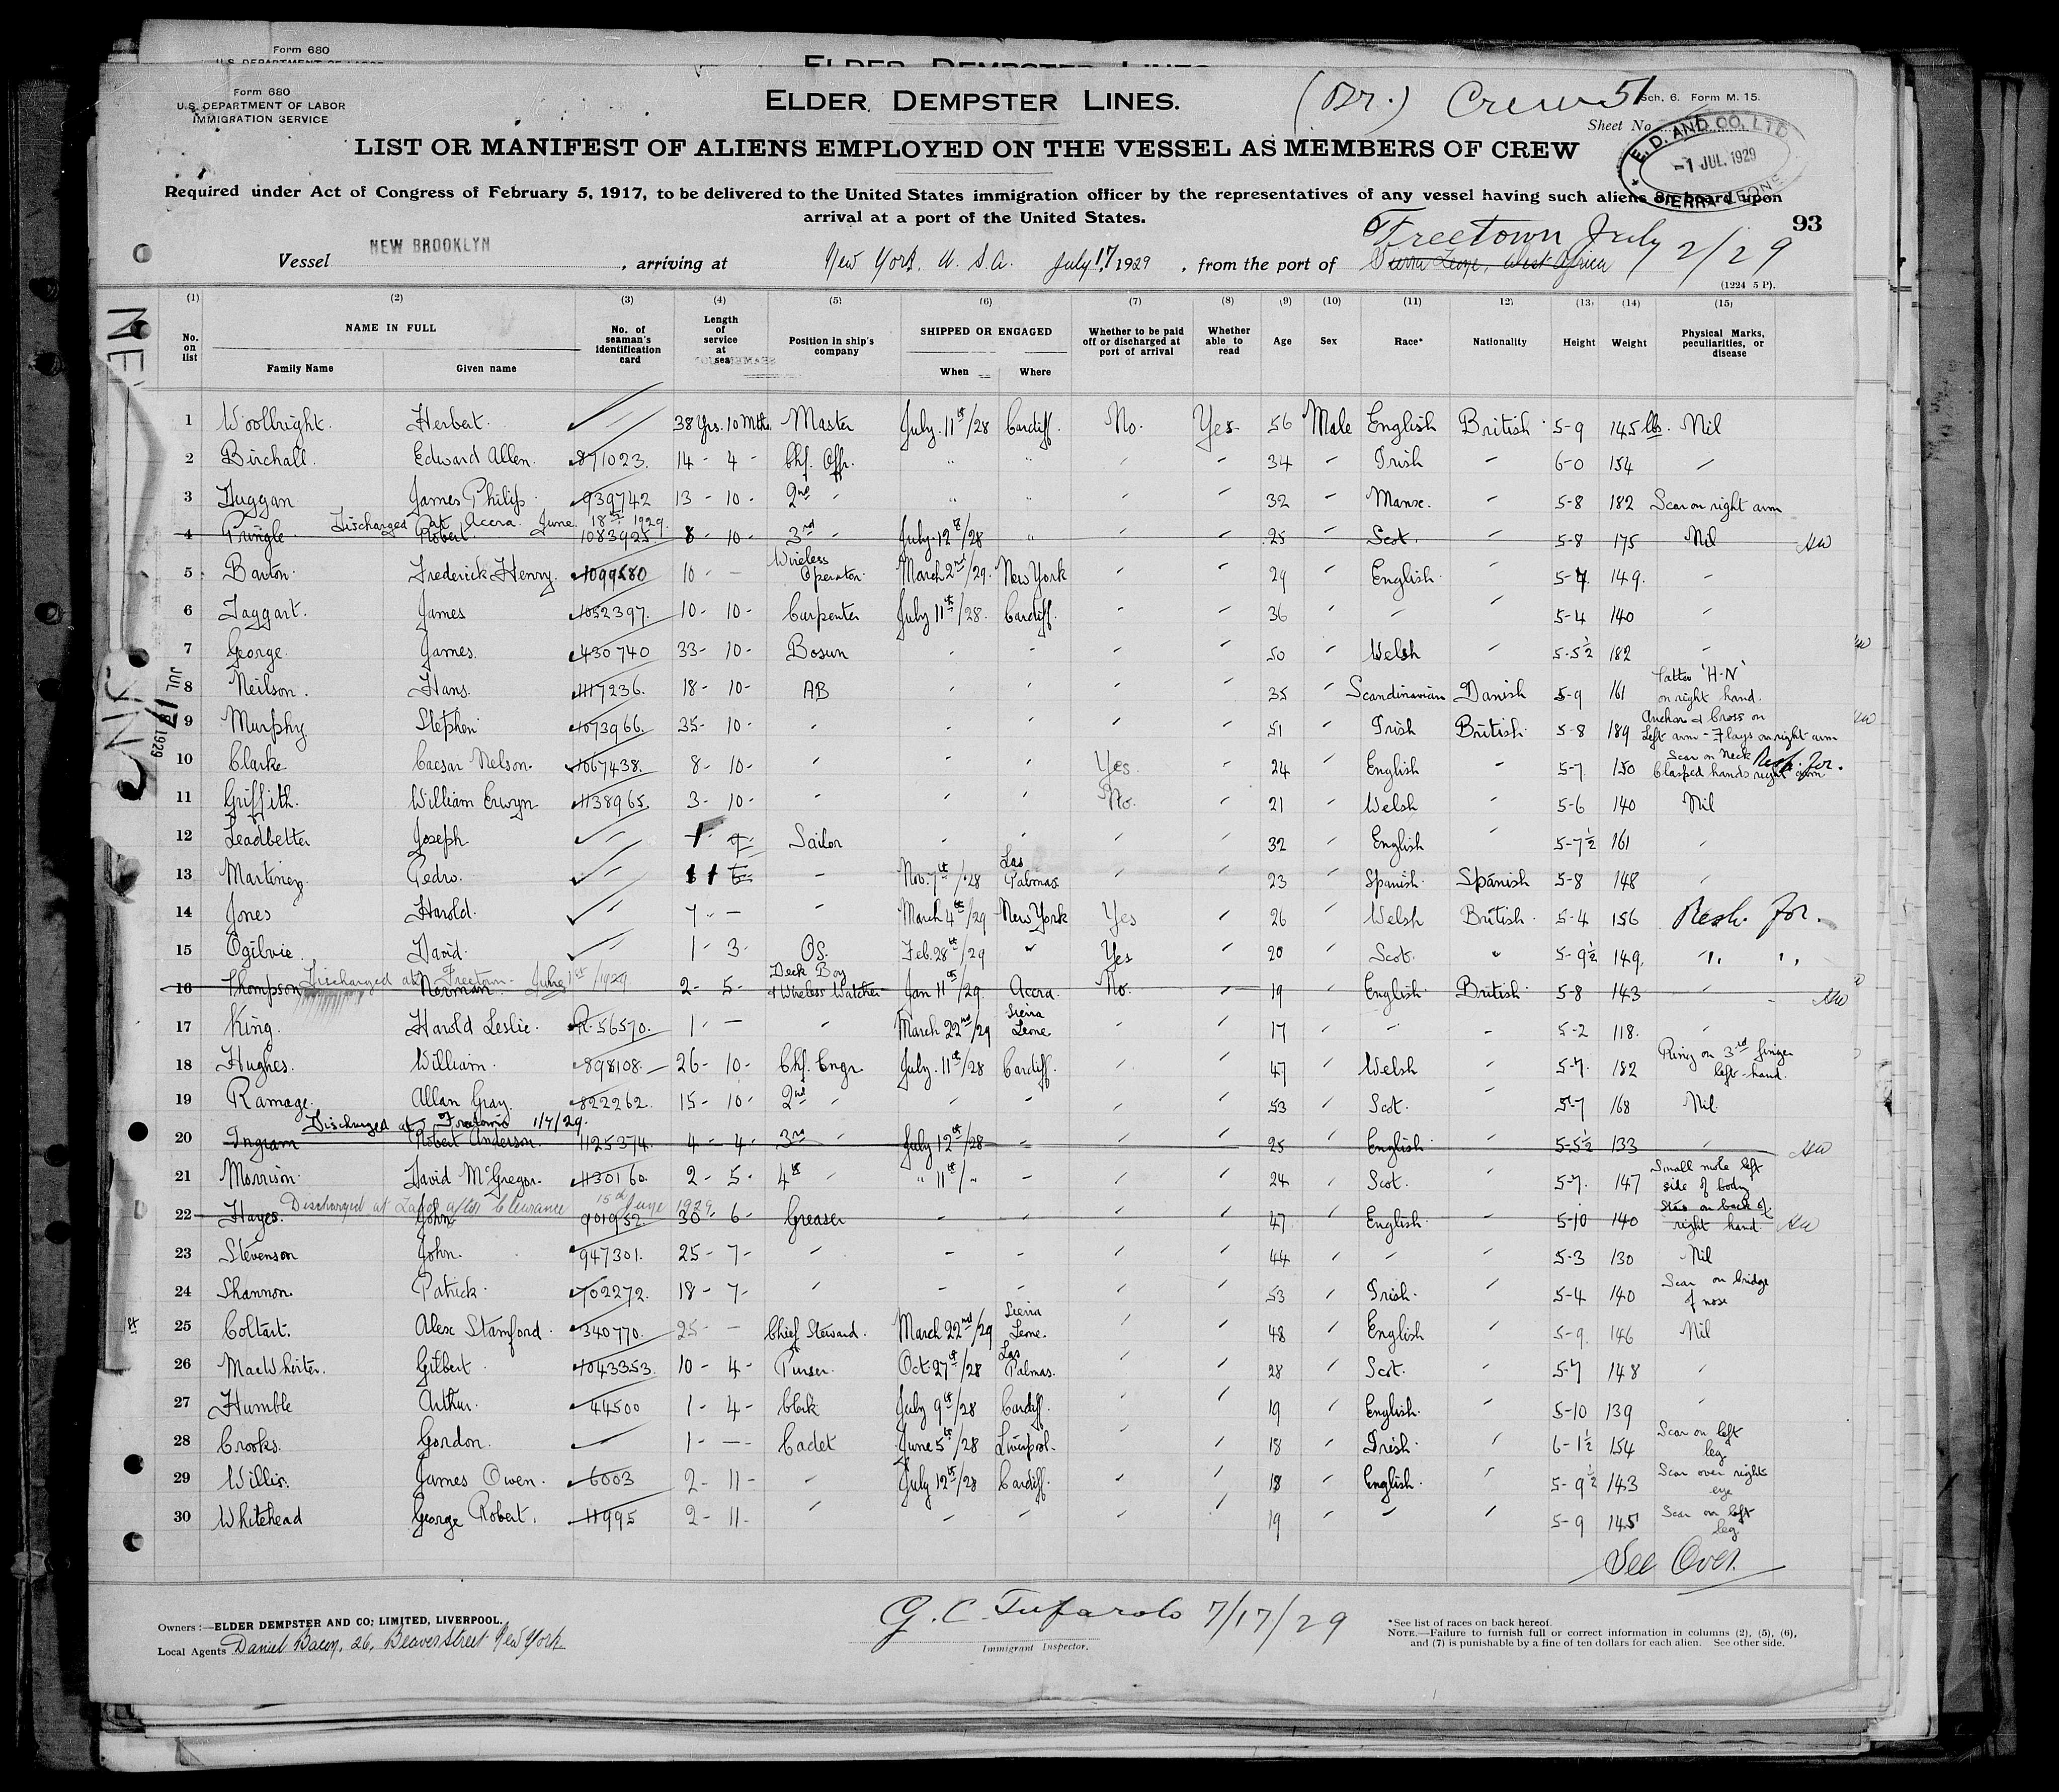 Form 680
ELDER DEMPSTER LINES
Form 680
U.S. DEPARTMENT OF LABOR
IMMIGRATION SERVICE
ELDER DEMPSTER LINES.
(Br.) Crew 51
Sch. 6. Form M. 15.
Sheet No.
E. D. AND CO. LTD
-1 JUL. 1929
SIERRA LEONE
LIST OR MANIFEST OF ALIENS EMPLOYED ON THE VESSEL AS MEMBERS OF CREW
Required under Act of Congress of February 5, 1917, to be delivered to the United States immigration officer by the representatives of any vessel having such aliens on board upon
arrival at a port of the United States.
93
Freetown July 2/29
Vessel NEW BROOKLYN, arriving at New York, U.S.A. July 17, 1929, from the port of Sierra Leone, West Africa
(1224 5 P).
(1) (2) (3) (4) (5) (6) (7) (8) (9) (10) (11) 12) (13) (14) (15)
No. on list NAME IN FULL Family Name Given name No. of seaman's identification card Length of service at sea Position in ship's company SHIPPED OR ENGAGED When Where Whether to be paid off or discharged at port of arrival Whether able to read Age Sex Race* Nationality Height Weight Physical Marks, peculiarities, or disease
JUL 17 1929
1 Woolbright. Herbert. 38 Yrs. 10 Mths. Master July. 11th/28 Cardiff. No. Yes. 56 Male English British 5-9 145 lbs. Nil
2 Birchall. Edward Allen. 871023. 14 - 4 - Chf. Offr. " " " " 34 " Irish " 6-0 154 "
3 Duggan James Philip 939742 13 - 10 - 2nd " " " " " 32 " Manx. " 5-8 182 Scar on right arm
Discharged at Accra. June 18th 1929.
4 Pringle Robert. 1083925 8 - 10 - 3rd " July 12th/28 " " " 25 " Scot. " 5-8 175 Nil
5 Barton. Frederick Henry. 1099580 10 - — Wireless Operator. March 2nd/29. New York " " 29 " English. " 5-7 149. "
6 Taggart. James 1052397. 10 - 10 - Carpenter July 11th/28. Cardiff. " " 36 " " " 5-4 140 "
7 George. James. 430740 33 - 10 - Bosun " " " " 50 " Welsh " 5-5½ 182 "
8 Neilson. Hans. 1117236. 18 - 10 - AB " " " " 35 " Scandinavian Danish 5-9 161 Tattoo 'H-N' on right hand.
9 Murphy. Stephen 1073966. 35 - 10 - " " " " " 51 " Irish British. 5-8 189 Anchor & Cross on Left arm - Flags on right arm
10 Clarke Caesar Nelson. 1067438. 8 - 10 - " " " Yes. " 24 " English " 5-7 150 Scar on Neck Clasped hands right arm Resh. for.
11 Griffith. William Erwyn. 1138965. 3 - 10 - " " " No. " 21 " Welsh " 5-6 140 Nil
12 Leadbetter Joseph Sailor " " " " 32 " English " 5-7½ 161 "
13 Martinez. Pedro. " Nov. 7th/28 Las Palmas. " " 23 " Spanish. Spanish 5-8 148 "
14 Jones Harold. 7 - — " March 4th/29 New York Yes " 26 " Welsh British. 5-4 156 Resh. for.
15 Ogilvie. David. 1 - 3 - OS. Feb. 28th/29 " Yes " 20 " Scot. " 5-9½ 149. " "
Discharged at Freetown
16 Thompson Norman. 2 - 5 - Deck Boy & Wireless Watcher Jan 11th/29. Accra. No. " 19 " English British. 5-8 143 "
17 King. Harold Leslie. R. 56570. 1 - — " March 22nd/29 Sierra Leone " " 17 " " " 5-2 118. "
18 Hughes. William. 898108. 26 - 10 - Chf. Engr. July. 11th/28 Cardiff. " " 47 " Welsh " 5-7. 182 Ring on 3rd finger left-hand.
19 Ramage. Allan Gray. 822262. 15 - 10 - 2nd " " " " " 53 " Scot. " 5-7 168 Nil.
Discharged at Freetown 1/7/29.
20 Ingram Robert Anderson. 1125374. 4 - 4 - 3rd " July 12th/28 " " " 25 " English " 5-5½ 133 "
21 Morrison. David McGregor. 1130160. 2 - 5 - 4th " " 11th/ " " " " 24 " Scot. " 5-7. 147 Small mole left side of body
Discharged at Lagos after Clearance 15th June 1929
22 Hayes. John. 901952. 30 - 6 - Greaser " " " " 47 " English " 5-10 140 Star on back of right hand
23 Stevenson John. 947301. 25 - 7 - " " " " " 44 " " " 5-3 130 Nil
24 Shannon. Patrick. 702272. 18 - 7 - " " " " " 53 " Irish. " 5-4 140 Scar on bridge of nose
25 Coltart. Alex Stamford. 340770. 25 - — Chief Steward. March 22nd/29 Sierra Leone. " " 48 " English " 5-9. 146 Nil
26 MacWhirter. Gilbert. 1043353. 10 - 4 - Purser. Oct. 27th/28 Las Palmas. " " 28 " Scot. " 5-7 148 "
27 Humble Arthur. 44500 1 - 4 - Clerk July 9th/28 Cardiff. " " 19 " English. " 5-10 139 "
28 Crooks. Gordon. 1 - — Cadet June 5th/28 Liverpool. " " 18 " Irish. " 6-1½ 154 Scar on left leg
29 Willis. James Owen. 6003 2 - 11 - " July 12th/28 Cardiff. " " 18 " English. " 5-9½ 143 Scar over right eye
30 Whitehead George Robert. 11995 2 - 11 - " " " " " 19 " " " 5-9 145 Scar on left leg.
See Over.
Owners:—ELDER DEMPSTER AND CO; LIMITED, LIVERPOOL.
Local Agents Daniel Bacon, 26, Beaver Street New York
G. C. Tufarolo 7/17/29
Immigrant Inspector.
*See list of races on back hereof.
NOTE.—Failure to furnish full or correct information in columns (2), (5), (6),
and (7) is punishable by a fine of ten dollars for each alien. See other side.